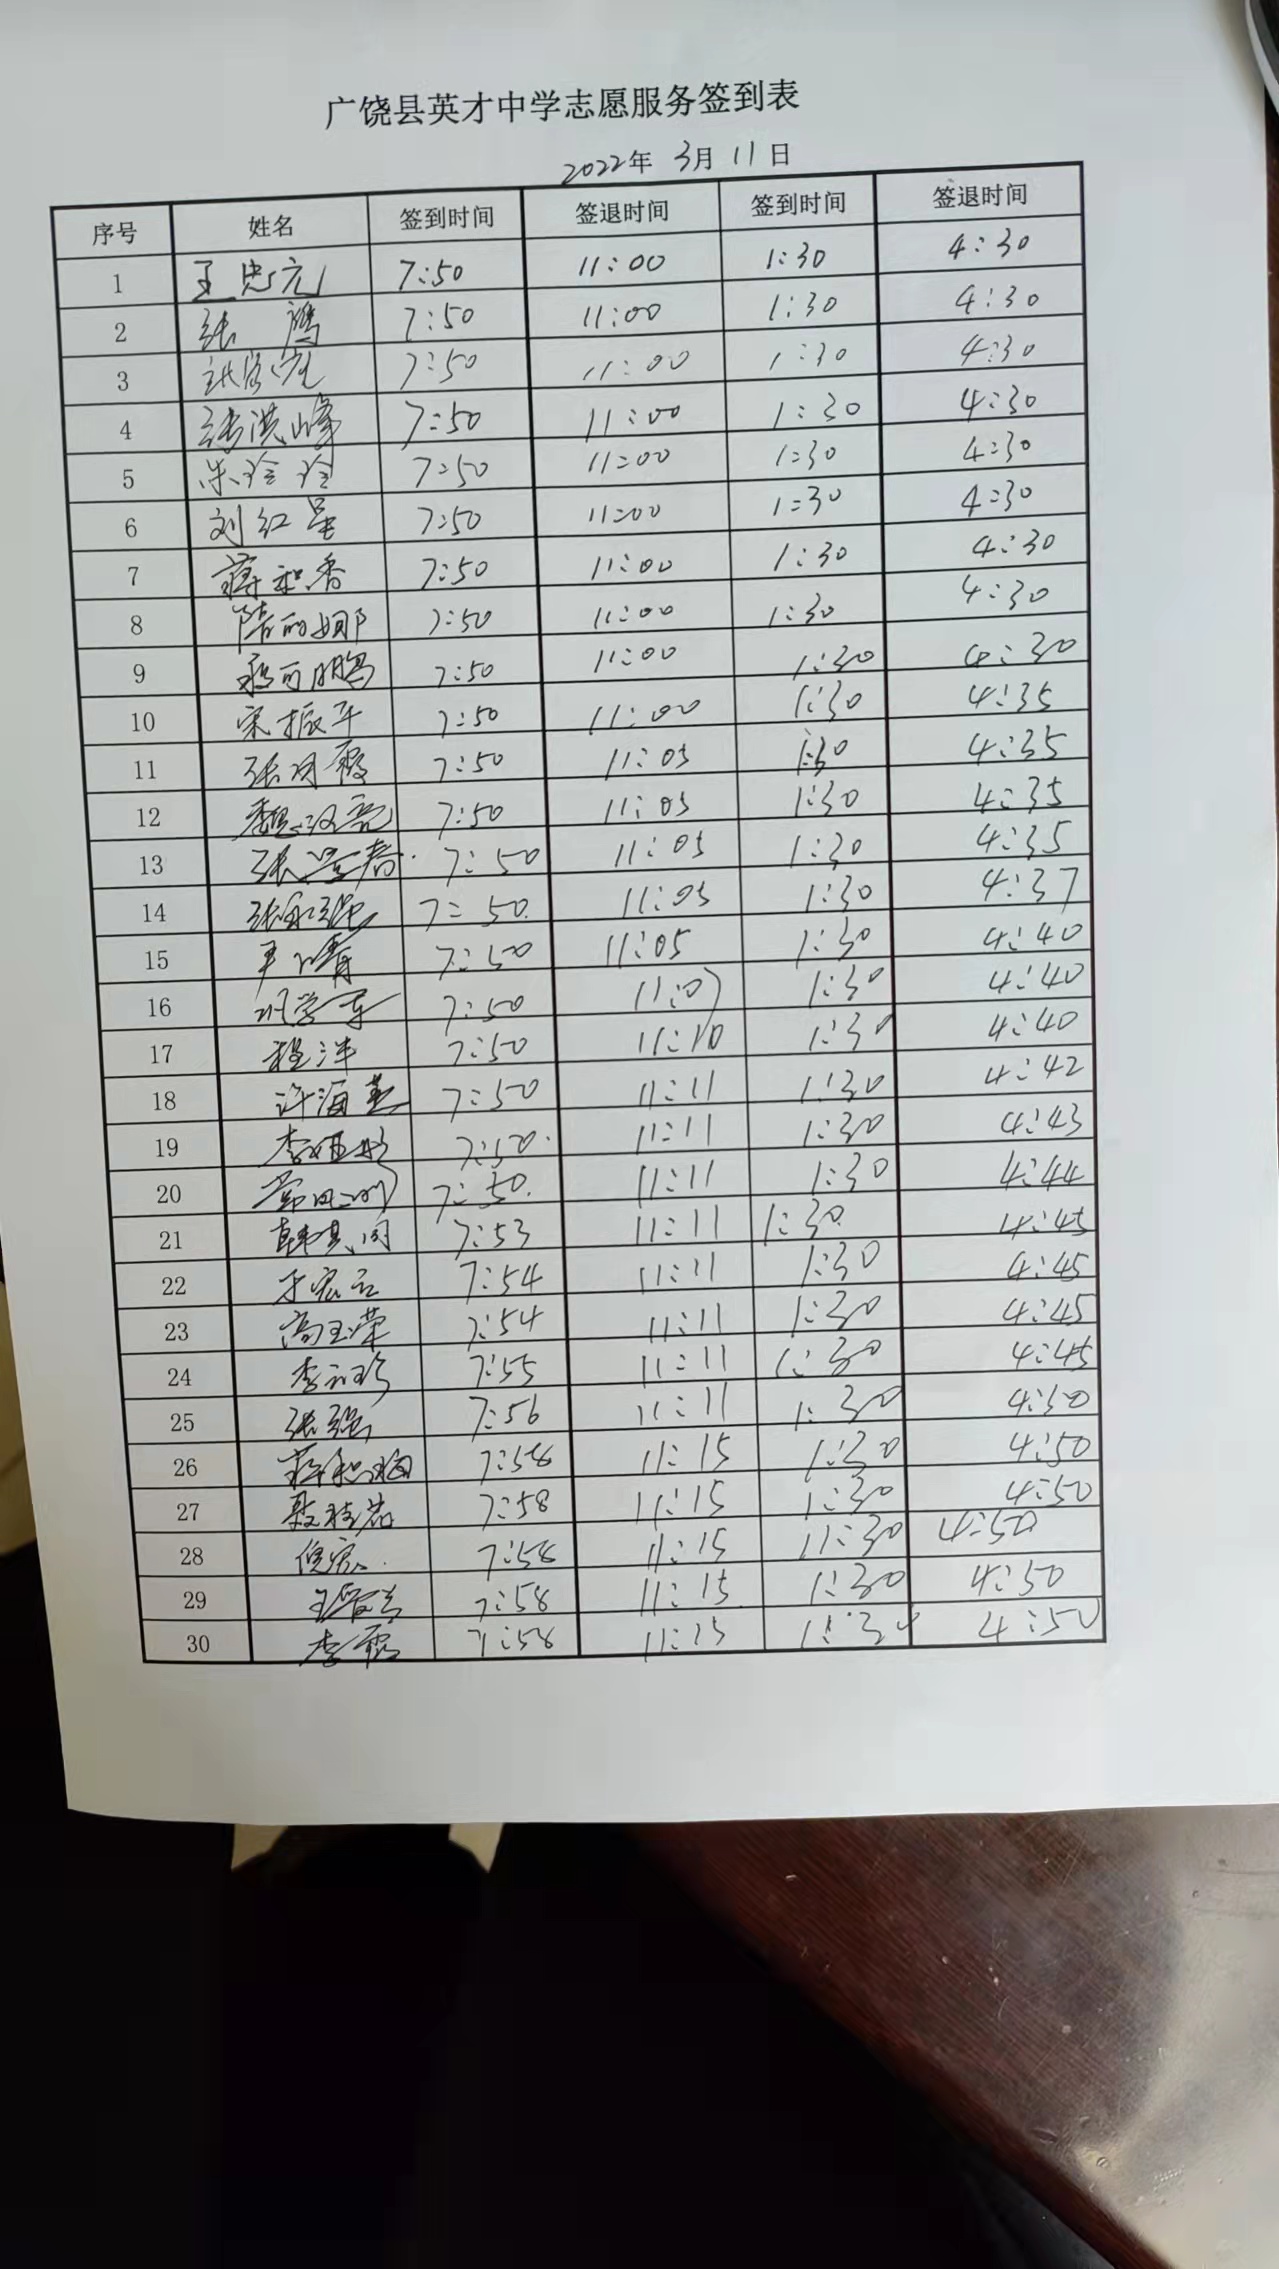 广饶县英才中学志愿服务签到表
2022年 3月 11日
序号 姓名 签到时间 签退时间 签到时间 签退时间
1 王忠元 7:50 11:00 1:30 4:30
2 张鹰 7:50 11:00 1:30 4:30
3 7:50 11:00 1:30 4:30
4 张洪峰 7:50 11:00 1:30 4:30
5 朱玲玲 7:50 11:00 1:30 4:30
6 刘红星 7:50 11:00 1:30 4:30
7 蒋和香 7:50 11:00 1:30 4:30
8 隋丽娜 7:50 11:00 1:30 4:30
9 7:50 11:00 1:30 4:30
10 宋振平 7:50 11:00 1:30 4:35
11 7:50 11:05 1:30 4:35
12 7:50 11:05 1:30 4:35
13 7:50 11:05 1:30 4:35
14 张永强 7:50 11:05 1:30 4:37
15 7:50 11:05 1:30 4:40
16 7:50 11:07 1:30 4:40
17 程洋 7:50 11:10 1:30 4:40
18 许海燕 7:50 11:11 1:30 4:42
19 7:50 11:11 1:30 4:43
20 7:50 11:11 1:30 4:44
21 7:53 11:11 1:30 4:45
22 7:54 11:11 1:30 4:45
23 高玉荣 7:54 11:11 1:30 4:45
24 7:55 11:11 1:30 4:45
25 张强 7:56 11:11 1:30 4:50
26 7:58 11:15 1:30 4:50
27 7:58 11:15 1:30 4:50
28 7:58 11:15 11:30 4:50
29 7:58 11:15 1:30 4:50
30 李霞 7:58 11:15 1:30 4:50